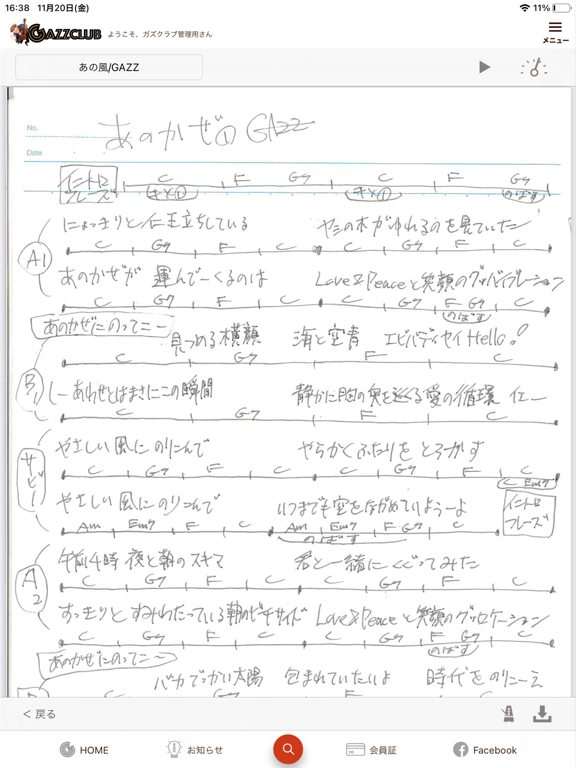 16:38 11月20日(金) 11%
GAZZCLUB ようこそ、ガズクラブ管理用さん メニュー
あの風/GAZZ
No.
Date
あのかぜ① GAZZ
イントロフレーズ C F G7 C F G7
キメ① キメ① のばす
にょっきりと仁王立ちしている ヤシの木がゆれるのを見ていた
A1 C G7 F C C G7 F C
あのかぜが 運んでーくるのは Love & Peaceと笑顔のグッバイブレーション
C G7 F C C G7 F G7
のばす
あのかぜにのってこー
見つめる横顔 海と空青 エビバディセイ Hello!
C G7 F C
B1 しーあわせとはまさにこの瞬間 静かに 巡る愛の循環
C G7 F C
サビ1 やさしい風に のりこんで やらかくふたりを とろかす
C G7 F C C G7 F C
C Em7
やさしい風に のりこんで いつまでも空をながめていようーよ
Am Em7 F C Am Em7 F G7
のばす
イントロフレーズ
A2 午前4時 夜と朝のスキマ 君と一緒に くぐってみた
C G7 F C C G7 F C
すっきりと すみわたっている朝のビーチサイド Love & Peaceと笑顔のグッロケーション
C G7 F C C G7 F G7
のばす
あのかぜにのってこー
バカでっかい太陽 包まれていたいよ 時代をのりこーえ
C G7 F C
< 戻る
HOME お知らせ 会員証 Facebook